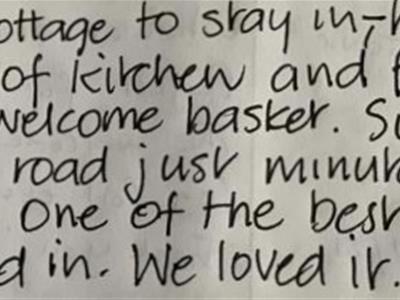 ottage to stay in,
of kitchen and
welcome basket. S
road just minut
One of the best
d in. We loved it.